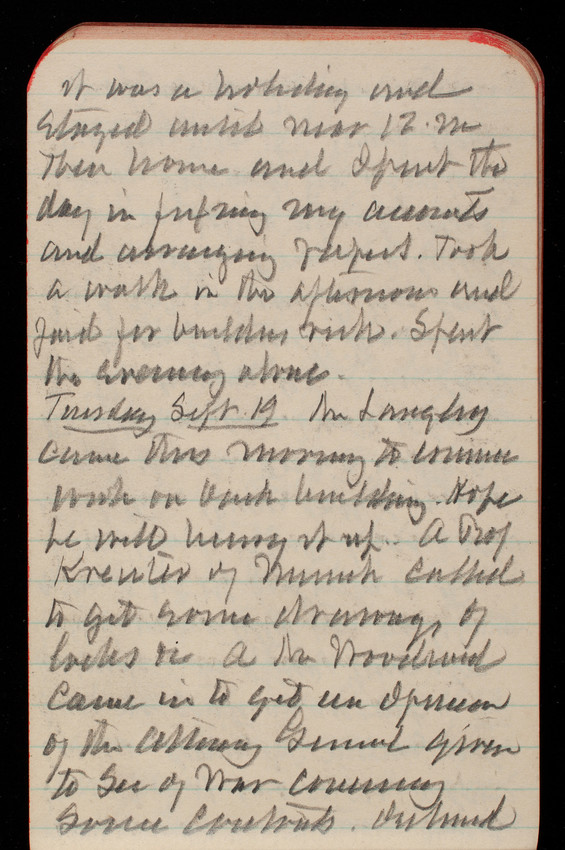 it was a holiday and
stayed until near 12. m
Then home and spent the
day in fixing my accounts
and arranging papers. Took
a walk in the afternoon and
paid for building. Spent
the evening alone.
Tuesday Sept 19 Mr Langley
came this morning to commence
work on back building. Hope
he will hurry it up. A Prof
Kreuter of Munich called
to get some drawings of
locks &c A Mr Woodward
came in to get an opinion
of the Attorney General given
to Sec of War concerning
some contracts.